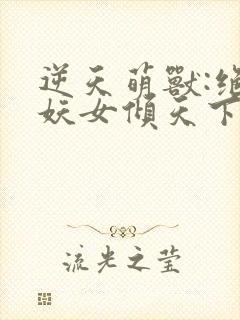 逆天萌獸:絕
妖女傾天下
流光之莹